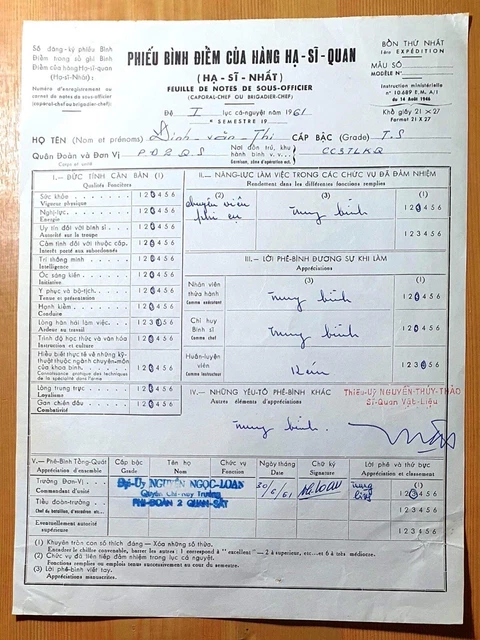 Số đăng-ký phiếu Bình
Điểm trong sổ ghi Bình
Điểm của Hàng Hạ-sĩ-quan
(Hạ-sĩ-Nhất)
Numéro d'enregistrement au
carnet de notes de sous-officier
(caporal-chef ou brigadier-chef)
PHIẾU BÌNH ĐIỂM CỦA HÀNG HẠ-SĨ-QUAN
(HẠ-SĨ-NHẤT)
FEUILLE DE NOTES DE SOUS-OFFICIER
(CAPORAL-CHEF OU BRIGADIER-CHEF)
BỔN THỨ NHẤT
1ère EXPÉDITION
MẪU SỐ
MODÈLE N°
Instruction ministérielle
n° 10.689 E.M.A/1
du 14 Août 1946
Khổ giấy 21 × 27
Format 21 × 27
Đệ I lục cá-nguyệt năm 1961
SEMESTRE 19
HỌ TÊN (Nom et prénoms) Đinh văn Thi CẤP BẬC (Grade) T.S
Quân Đoàn và Đơn Vị PĐ2QS
Corps et unité
Nơi đồn trú, khu
hành binh v.v...
Garnison, zone d'opération act.
CC3TLKQ
I.- ĐỨC TÍNH CĂN BẢN (1)
Qualités Foncières
Sức khỏe 1 2 3 4 5 6
Vigueur physique
Nghị-lực 1 2 3 4 5 6
Energie
Uy tín đối với binh sĩ 1 2 3 4 5 6
Autorité sur la troupe
Cảm tình đối với thuộc cấp 1 2 3 4 5 6
Intérêt porté aux subordonnés
Trí thông minh 1 2 3 4 5 6
Intelligence
Óc sáng kiến 1 2 3 4 5 6
Initiative
Y phục và bộ-tịch 1 2 3 4 5 6
Tenue et présentation
Hạnh kiểm 1 2 3 4 5 6
Conduite
Lòng hăn hái làm việc 1 2 3 4 5 6
Ardeur au travail
Trình độ học thức và văn hóa 1 2 3 4 5 6
Instruction et culture
Hiểu biết thực tế về những kỹ-
thuật thuộc ngành chuyên-môn
của khoa binh 1 2 3 4 5 6
Connaissance pratique des techniques
de la spécialité dans l'arme
Lòng trung trực 1 2 3 4 5 6
Loyalisme
Gan chiến đấu 1 2 3 4 5 6
Combativité
II.- NĂNG-LỰC LÀM VIỆC TRONG CÁC CHỨC VỤ ĐÃ ĐẢM NHIỆM
Rendement dans les différentes fonctions remplies
(2) (3) (1)
chuyên viên
phi cụ
trung bình
1 2 3 4 5 6
1 2 3 4 5 6
III.- LỜI PHÊ-BÌNH ĐƯƠNG SỰ KHI LÀM
Appréciations
(3) (1)
Nhân viên
thừa hành
Comme exécutant
trung bình
1 2 3 4 5 6
Chỉ huy
Binh sĩ
Comme chef
trung bình
1 2 3 4 5 6
Huấn-luyện
viên
Comme instructeur
Kém
1 2 3 4 5 6
IV.- NHỮNG YẾU-TỐ PHÊ-BÌNH KHÁC
Autres éléments d'appréciations
Thiếu-Uý NGUYỄN-THUY-THẢO
Sĩ-Quan Vật-Liệu
trung bình.
V.- Phê-Bình Tổng-Quát
Appréciation d'ensemble
Cấp bậc
Grade
Tên họ
Nom
Chức vụ
Fonction
Ngày tháng
Date
Chữ ký
Signature
Lời phê và thứ bực
Appréciation et classement
Trưởng Đơn-Vị
Commandant d'unité
Đại-Uý NGUYỄN NGỌC-LOAN
Quyền Chỉ-huy Trưởng
PHI-ĐOÀN 2 QUAN-SÁT
30/6/61
Ng.LOAN
trung
bình
1 2 3 4 5 6
Tiểu đoàn-trưởng
Chef du bataillon, d'escadron etc...
1 2 3 4 5 6
Eventuellement autorité
supérieure
1 2 3 4 5 6
(1) Khuyên tròn con số thích đáng — Xóa những số thừa.
Encadrer le chiffre convenable, barrer les autres : 1 correspond à "excellent" — 2 à superieur, etc...et 6 à très médiocre.
(2) Chức vụ đã liên tiếp đảm nhiệm trong lục cá nguyệt.
Fonctions remplies ou emplois tenus successivement au cours du semestre.
(3) Lời phê-bình viết tay.
Appréciations manuscrites.